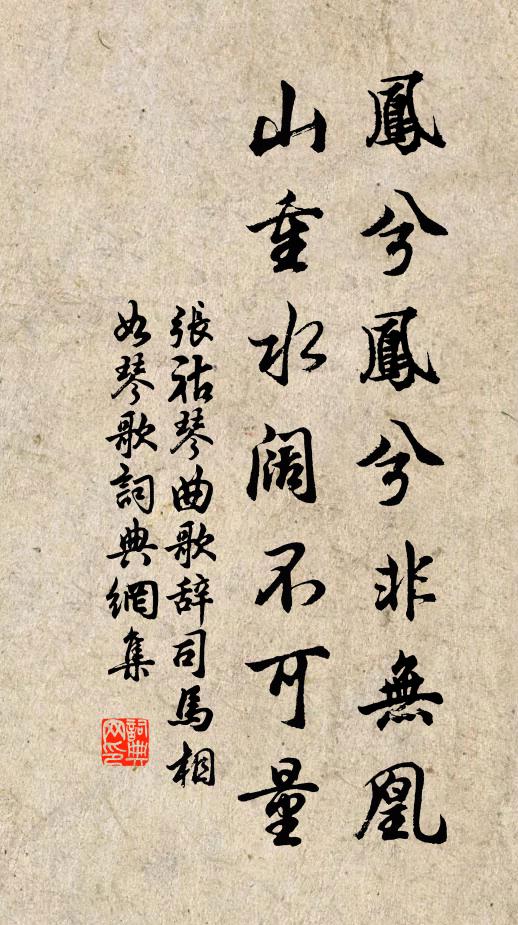 鳳兮鳳兮非無凰
山重水阔不可量
張祜琴曲歌辞司馬相
如琴歌詞典網集
詞典網印